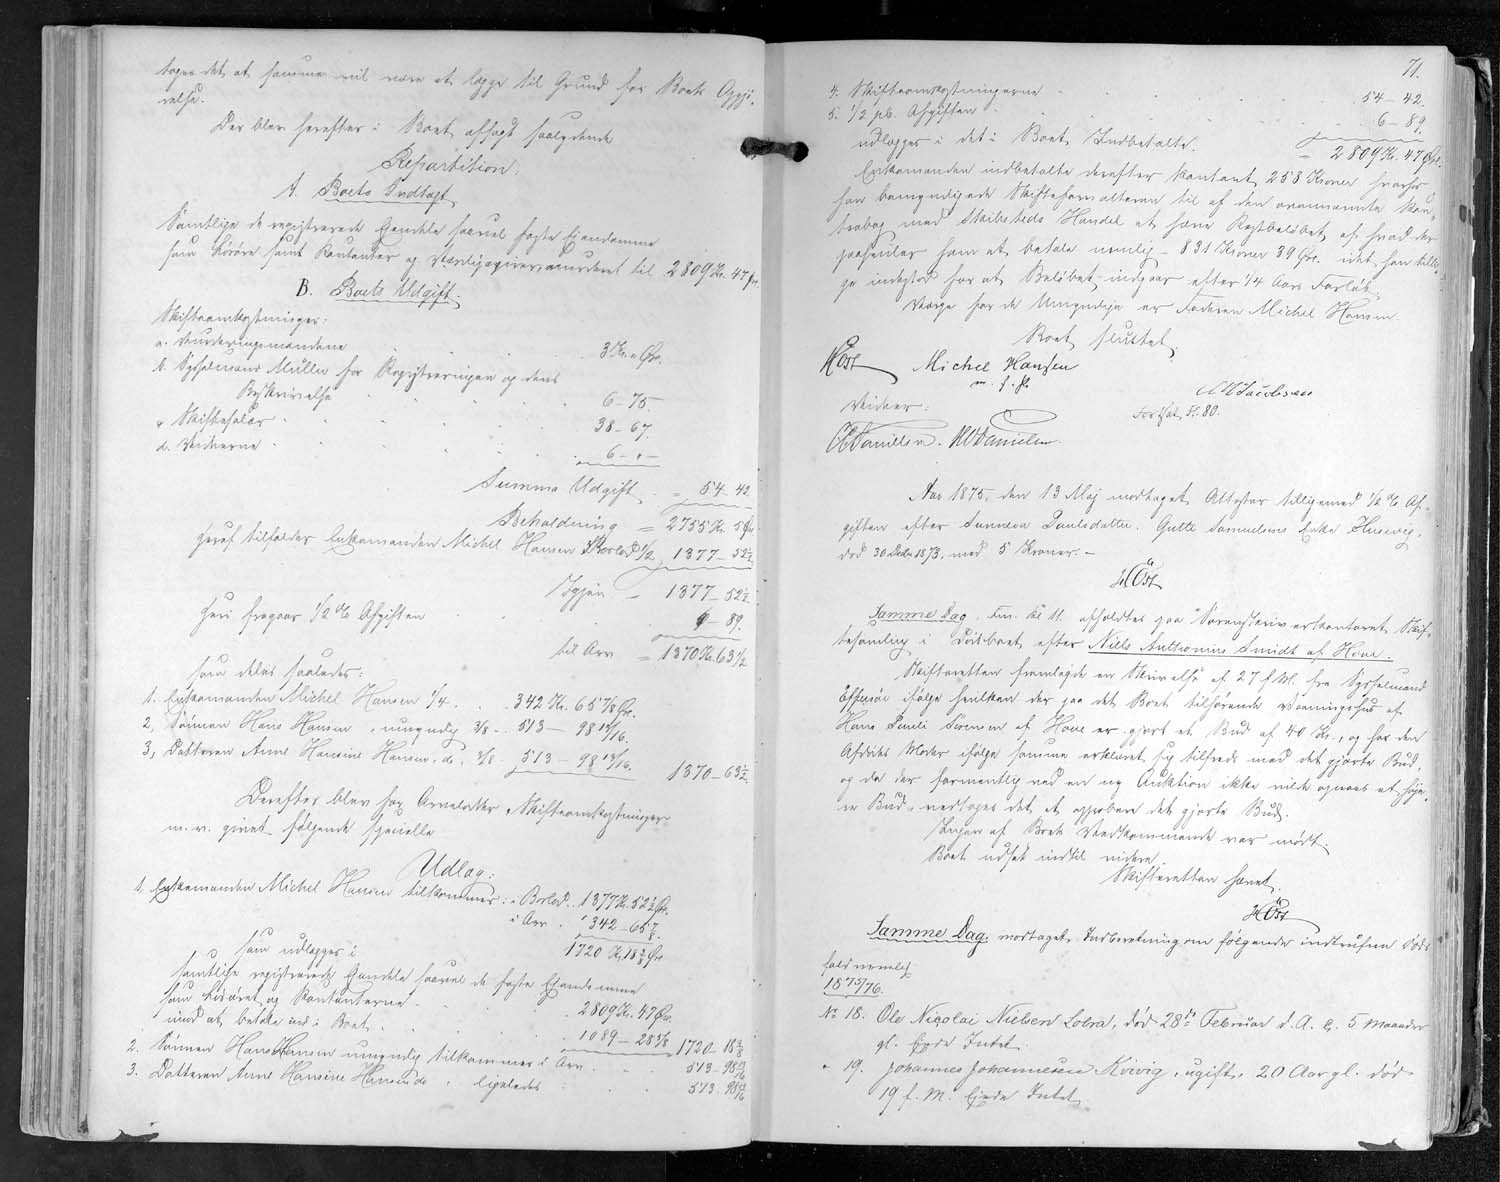 toges det at samme vil være at lægge til Grund for Boets Opgjø-
relse.
Der blev herefter i Boet afsagt saalydende
Repartition:
A. Boets Indtægt
Samtlige de registrerede Ejendele saavel faste Ejendomme
som Løsøre samt Kontanter og vurderet til 2809 Kr. 47 Ør.
B. Boets Udgift.
Skifteomkostninger:
a. Vurderingsmændene 3 Kr. " Ør.
b. Sysselmand Müller for Registreringen og dens
Beskrivelse 6 - 75.
c. Skiftesalær 38 - 67.
d. Vidnerne 6 - " -
Summa Udgift = 54 - 42.
Beholdning = 2755 Kr. 5 Ør.
Heraf tilfalder Enkemanden Michel Hansen i Boslod 1/2 1377 - 52 1/2
Igjen = 1377 - 52 1/2.
Heri fragaar 1/2 % Afgiften 6 - 89.
til Arv = 1370 Kr. 63 1/2
som deles saaledes:
1. Enkemanden Michel Hansen 1/4 . . 342 Kr. 65 7/8 Ør.
2, Sønnen Hans Hansen, umyndig 3/8 - 513 - 98 13/16.
3, Datteren Anne Hansine Hansen, do. 3/8 - 513 - 98 13/16. 1370 - 63 1/2.
Derefter blev for Arvelodder, Skifteomkostninger
m. v. givet følgende specielle
Udlæg:
1. Enkemanden Michel Hansen tilkommer: i Boslod. 1377 Kr. 52 1/2 Ør.
i Arv . 342 - 65 7/8
1720 Kr. 18 3/8 Ør
som udlægges i
samtlige registrerede Ejendele saavel de faste Ejendomme
som Løsøret og Kontanterne . . 2809 Kr. 47 Ør.
mod at betale ind i Boet . . 1089 - 28 5/8 1720 - 18 3/8
2. Sønnen Hans Hansen umyndig tilkommer i Arv . . 513 - 98 13/16
3. Datteren Anne Hansine Hansen do. , ligeledes . . 513 - 98 13/16
71.
4. Skifteomkostningerne 54 - 42.
5. 1/2 pCt. Afgiften 6 - 89.
udlægges i det i Boet Indbetalte. = 2809 Kr. 47 Ør.
Enkemanden indbetalte derefter kontant 258 Kroner, hvorhos
han bemyndigede Skifteforvalteren til af den ovennævnte Kon-
trabog med Skibsteds Handel at hæve Restbeløbet af hvad der
paahviler ham at betale nemlig - 831 Kroner 39 Ør. idet han tilli-
ge indestod for at Beløbet indgaar efter 1/4 Aars Forløb.
Værge for de Umyndige er Faderen Michel Hansen.
Boet sluttet.
HØst Michel Hansen
m. f. P.
Jacobsen
Vidner: Fortsat, Fl. 80.
Danielsen. Danielsen
Aar 1875, den 13 Maj modtaget Attester tilligemed 1/2 % Af-
giften efter Sunneva Poulsdatter. Gutte Samuelsens Enke Husevig,
død 30 Decbr 1873, med 5 Kroner. -
HØst
Samme Dag Fm. Kl 11. afholdtes paa Sorenskriverkontoret Skif-
tesamling i Dødsboet efter Niels Anthonius Smidt af Hove.
Skifteretten fremlagde en Skrivelse af 27 f. M. fra Sysselmand
Effersøe ifølge hvilken der paa det Boet tilhørende Vaaningshus af
Hans Pauli Sørensen af Hove er gjort et Bud af 40 Kr., og har den
Afdødes Moder ifølge samme erklæret sig tilfreds med det gjorte Bud,
og da der formentlig ved en ny Auktion ikke vilde opnaas et høje-
re Bud, vedtoges det at approbere det gjorte Bud.
Ingen af Boets Vedkommende var mødt.
Boet udsat indtil videre.
Skifteretten hævet.
HØst
Samme Dag modtaget Indberetning om følgende indtrufne Døds-
fald nemlig
1875/76.
No 18. Ole Nicolai Nielsen Lobra, død 28de Februar d. A. c. 5 Maaneder
gl. Ejede Intet.
" 19. Johannes Johannesen Kvivig, ugift, 20 Aar gl. død
19 f. M. Ejede Intet